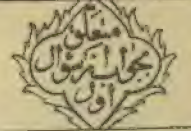 متعلق
بجواب سوال
اول